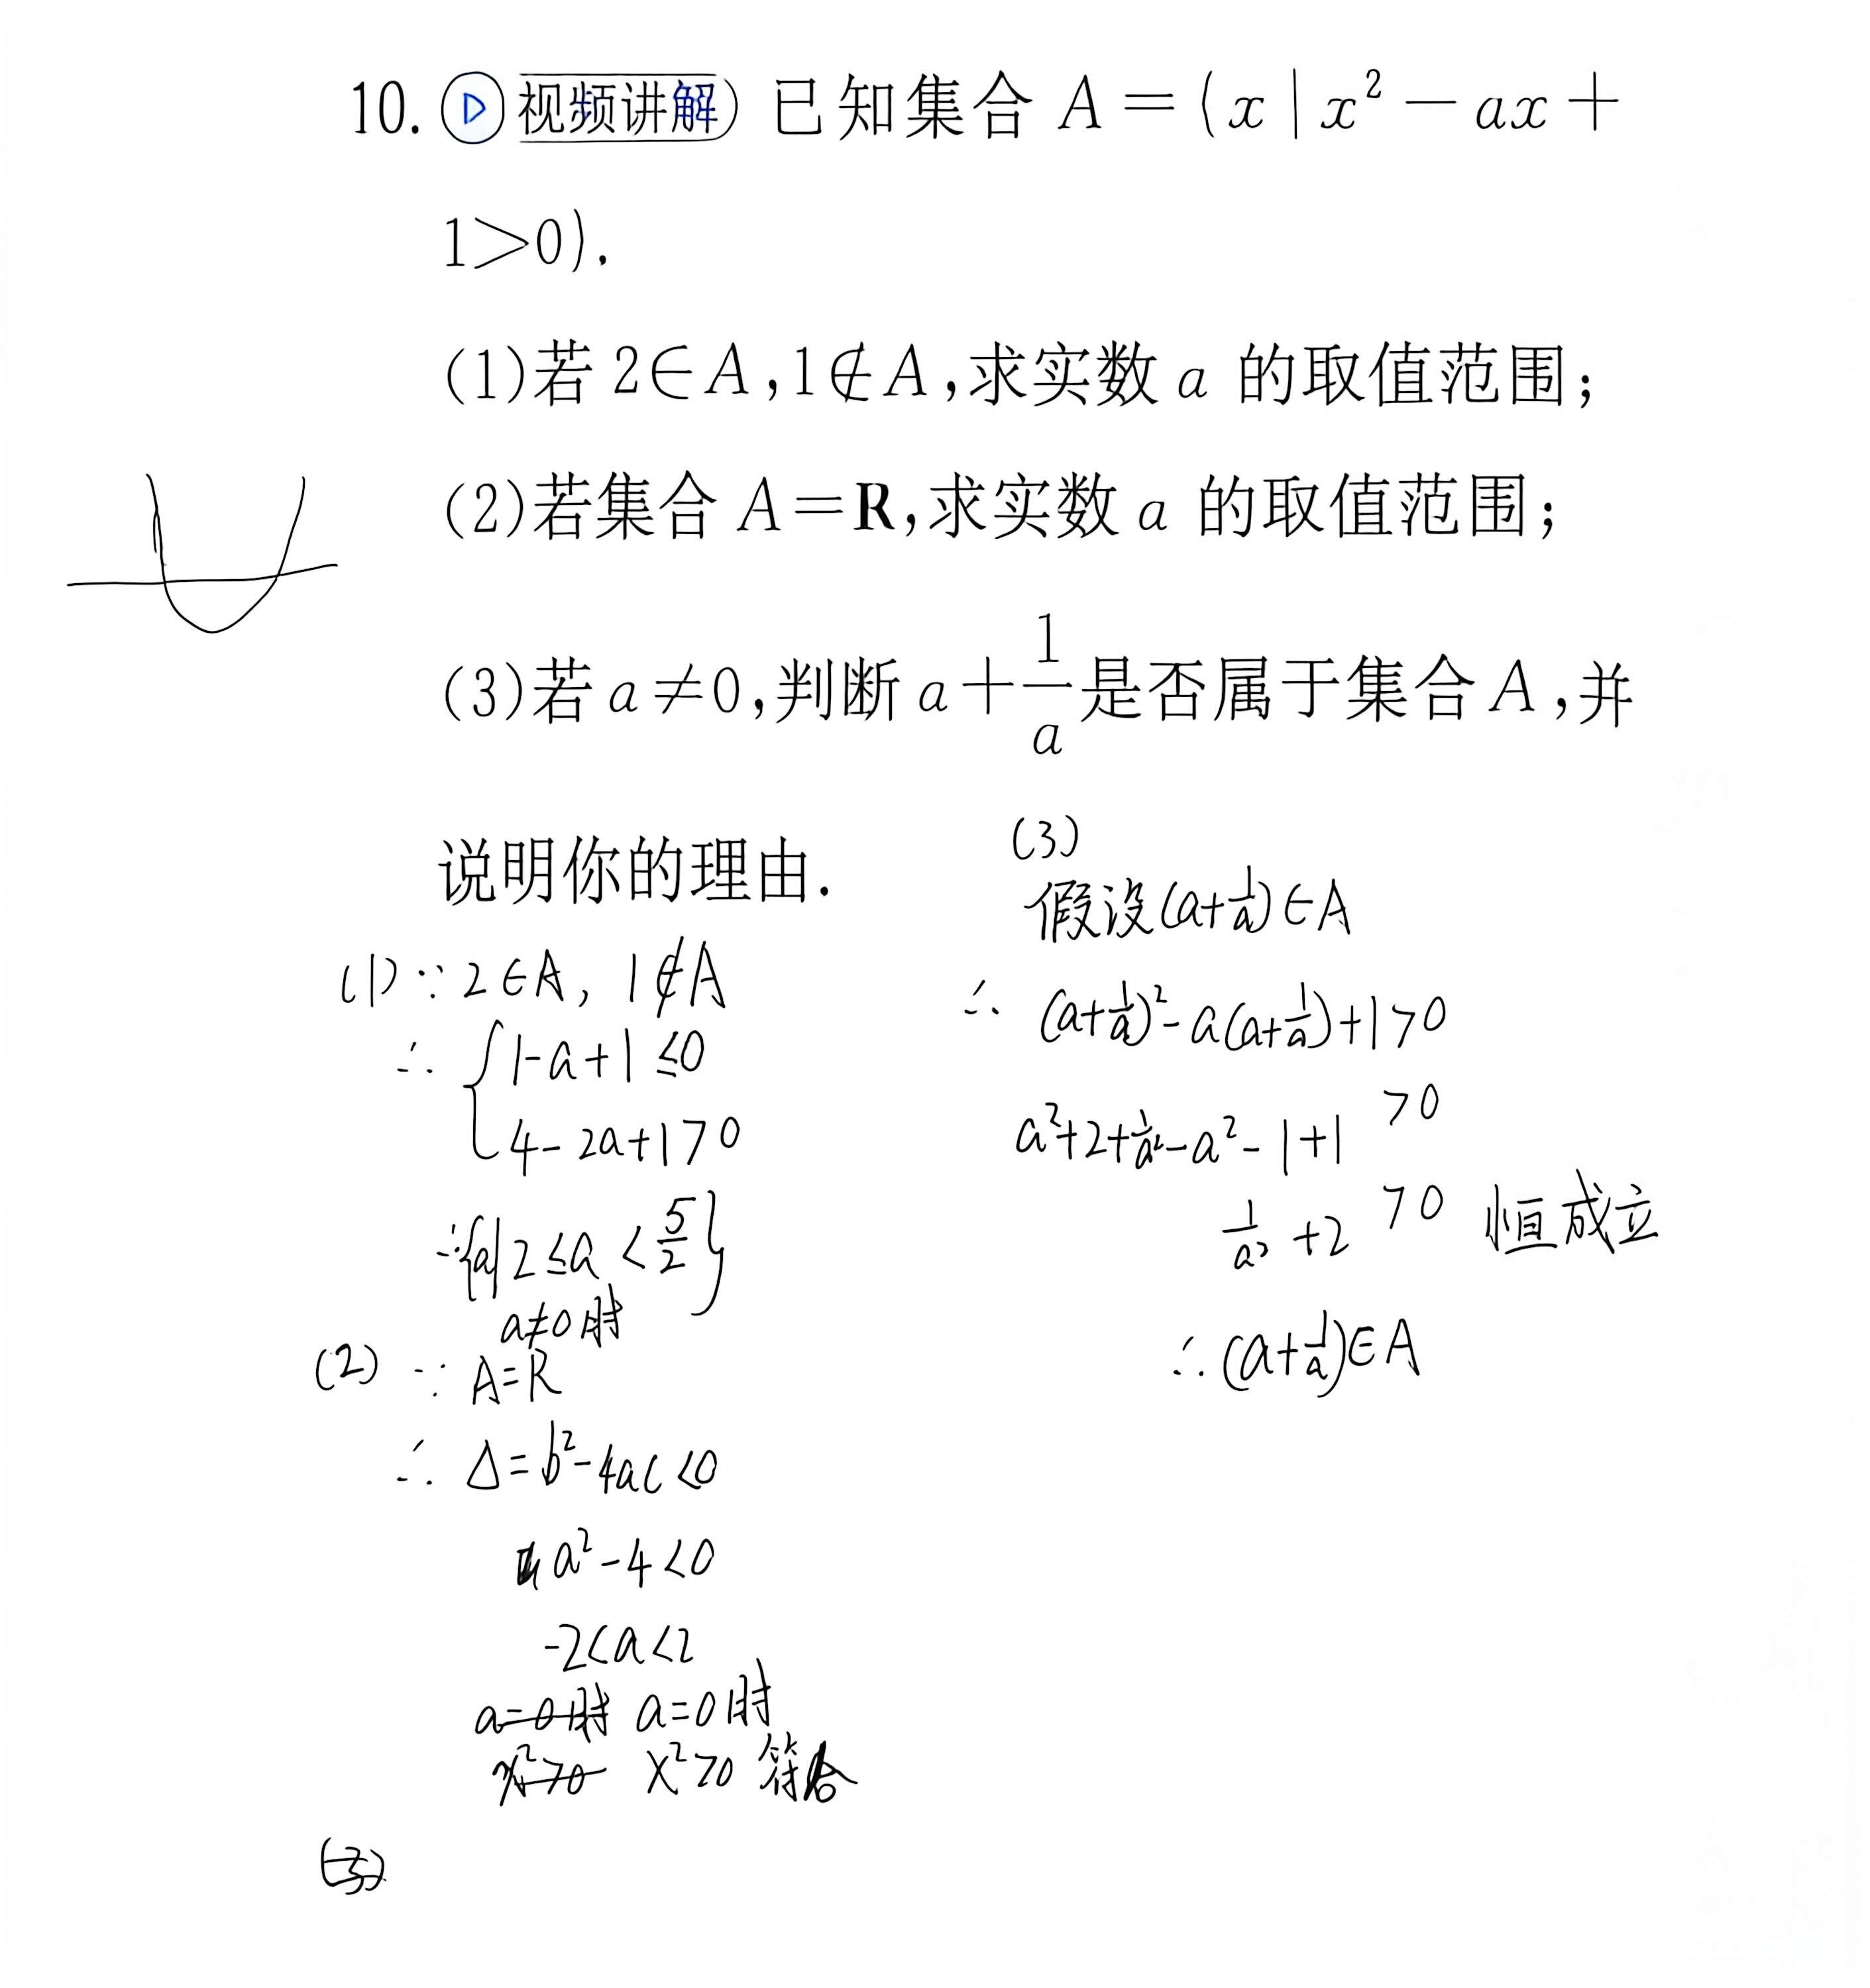 10. 视频讲解 已知集合 A=(x|x²-ax+
1>0).
(1)若 2∈A,1∉A,求实数 a 的取值范围;
(2)若集合 A=R,求实数 a 的取值范围;
(3)若 a≠0,判断 a+1/a 是否属于集合 A,并
说明你的理由.
(1)∵2∈A, 1∉A
∴ {1-a+1≤0
4-2a+1>0
∴{a|2≤a<5/2}
a≠0时
(2) ∵ A=R
∴ Δ=b²-4ac<0
a²-4<0
-2<a<2
a=0时 a=0时
x²>0 x²>0 符合
(3)
(3)
假设(a+1/a)∈A
∴ (a+1/a)²-a(a+1/a)+1>0
a²+2+1/a²-a²-1+1 >0
1/a²+2 >0 恒成立
∴(a+1/a)∈A